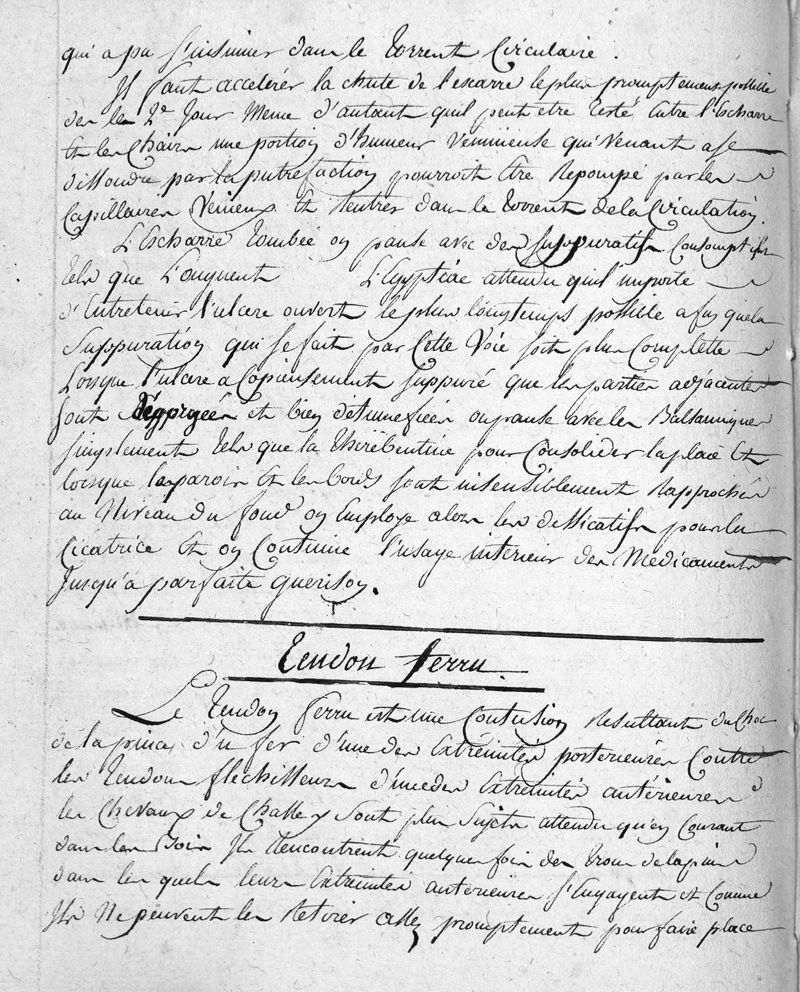 qui a pu s'insinuer dans le torrent Circulaire.
Il faut accelérer la chute de l'escarre le plus promptement possible
des le 2e Jour Meme d'autant quil peut etre resté entre l'Escharre
Et les Chairs une portion d'humeur venimeuse qui venant a se
dissoudre par la putrefaction pourroit Etre Repompé par les
Capillaires Veineux Et Rentrer dans le torrent de la Circulation.
L'Escharre tombée on panse avec des suppuratifs Consomptifs
tels que l'onguent L'Egyptiac attendu quil importe
d'Entretenir l'ulcere ouvert le plus longtemps possible afin que la
Suppuration qui se fait par Cette Voie soit plus Complette
Lorsque l'ulcere a Copieusement suppuré que les parties adjacentes
sont dégorgées et bien détumefiées on panse avec les Balsamiques
simplement tels que la thérébentine pour Consolider la plaie Et
lorsque les parois Et les bords sont insensiblement Rapprochés
au Niveau du fond on Employe alors les dessicatifs pour la
Cicatrice Et on Continue l'usage interieur des Medicaments
Jusqu'a parfaite guerison.
Tendon ferru.
Le Tendon Ferru est une Contusion Resultant du Choc
de la pince d'un fer d'une des Extrémités posterieures Contre
les Tendons fléchisseurs d'une des Extrémités antérieures
les Chevaux de Chasse y sont plus Sujets attendu qu'en Courant
dans les Bois Ils Rencontrent quelques fois des trous de lapins
dans les quels leurs Extremités anterieures s'Engagent et Comme
Ils Ne peuvent les Retirer assez promptement pour faire place